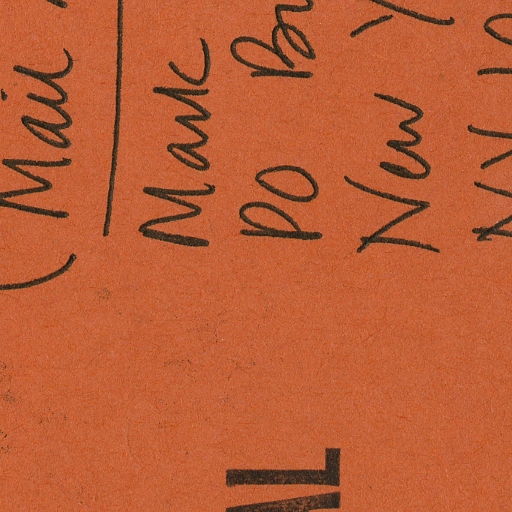 (Mail
Mark
PO B
New Y
NY 10